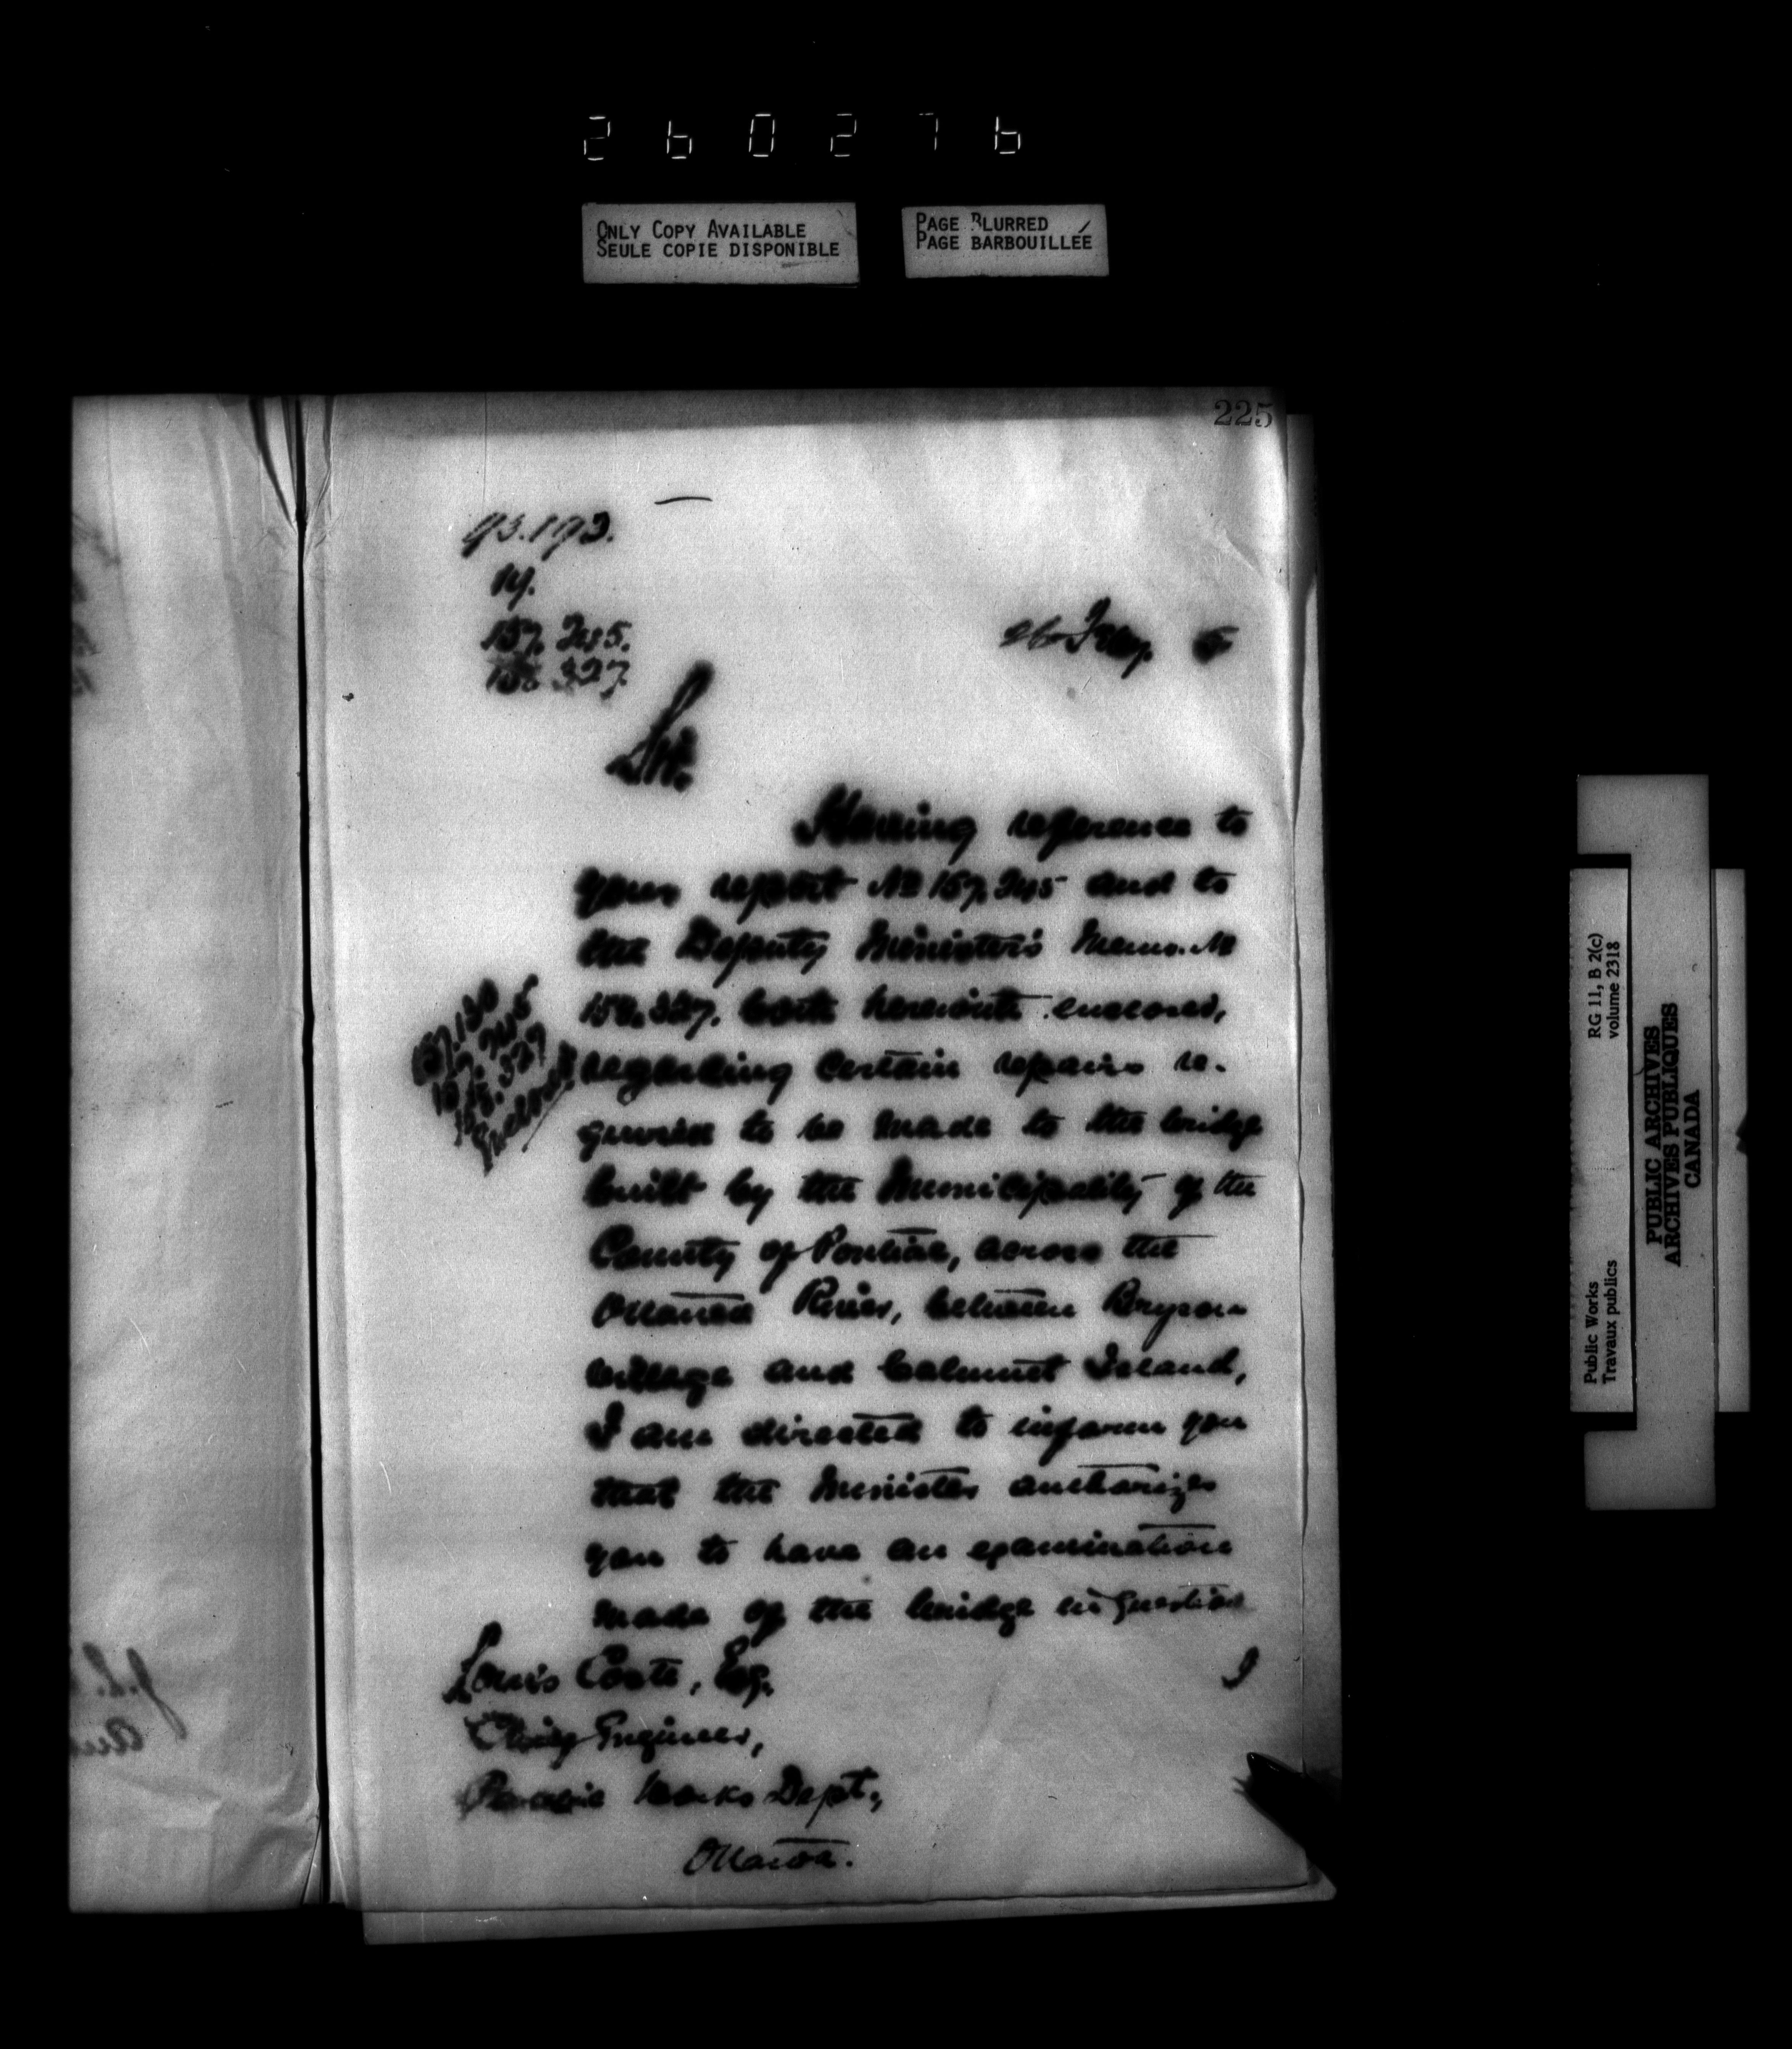 260276
ONLY COPY AVAILABLE
SEULE COPIE DISPONIBLE
PAGE BLURRED
PAGE BARBOUILLÉE
225
93.193.
14.
157.745.
158.327.
26 Feby. 5
Sir.
Having reference to
your report No 157.745 and to
the Deputy Minister's Memo. No
158.327. both herewith enclosed,
regarding certain repairs re-
quired to be made to the bridge
built by the Municipality of the
County of Pontiac, across the
Ottawa River, between Bryson
village and Calumet Island,
I am directed to inform you
that the Minister authorizes
you to have an examination
made of the bridge in question
Louis Coste, Esq.
Chief Engineer,
Public Works Dept.,
Ottawa.
Public Works
Travaux publics
RG 11, B 2(c)
volume 2318
PUBLIC ARCHIVES
ARCHIVES PUBLIQUES
CANADA